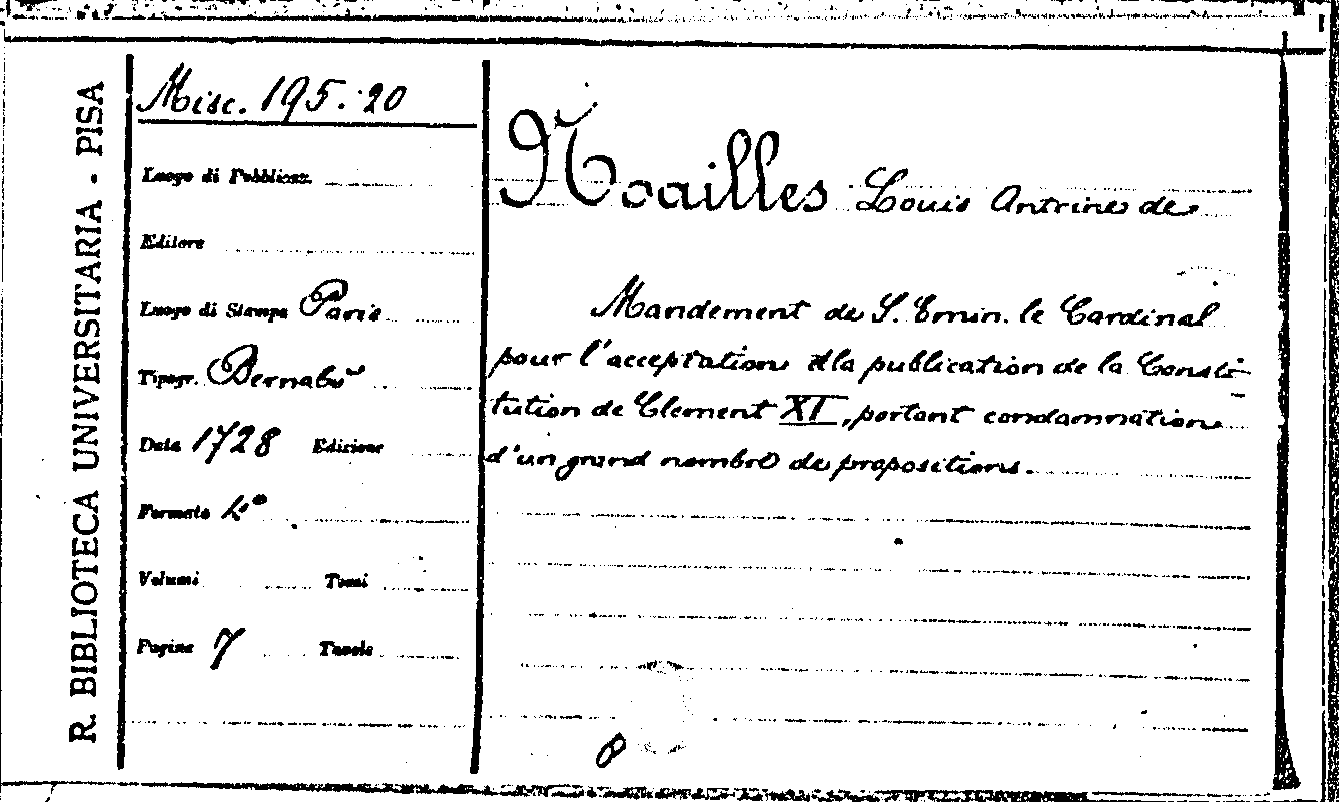 R. BIBLIOTECA UNIVERSITARIA - PISA
Misc. 195. 20
Luogo di Pubblicaz.
Editore
Luogo di Stampa Paris
Tipogr. Bernabò
Data 1728 Edizione
Formato 4°
Volumi Tomi
Pagine 7 Tavole
Noailles Louis Antrines de
Mandement de S. Emin. le Cardinal
pour l'acceptation & la publication de la Consti-
tution de Clement XI, portant condamnation
d'un grand nombre de propositions.